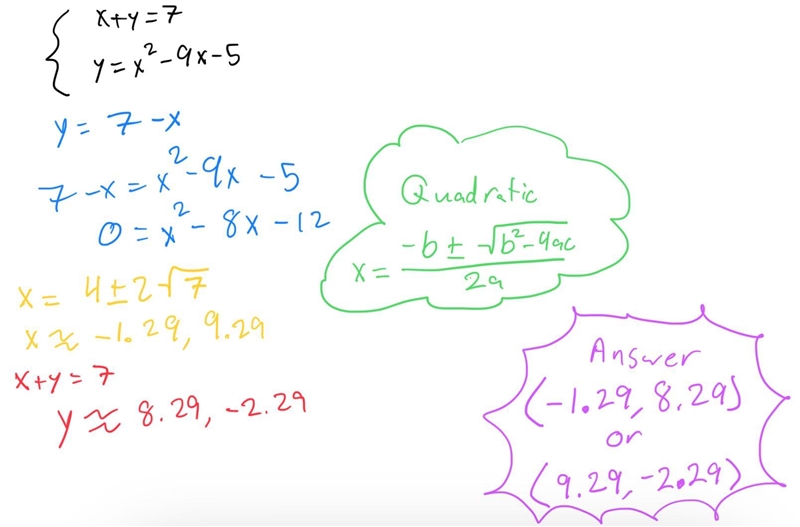 x+y=7
y=x²-9x-5
y=7-x
7-x=x²-9x-5
0=x²-8x-12
x=4±2√7
x≈-1.29, 9.29
x+y=7
y≈8.29, -2.29
Quadratic
x=(-b±√(b²-4ac))/2a
Answer
(-1.29, 8.29)
or
(9.29, -2.29)